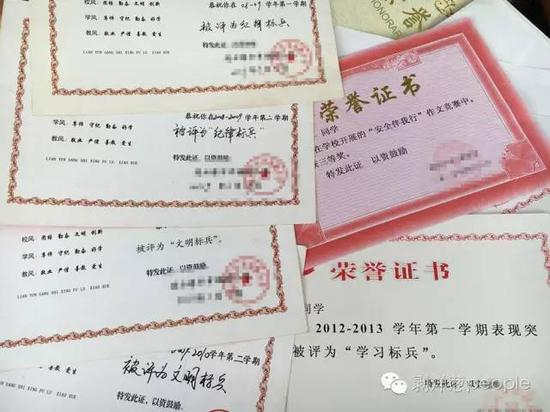 校风：团结 勤奋 文明 创新
恭祝你在 08-09 学年第一学期
学风：尊师 守纪 勤奋 好学
被评为纪律标兵
教风：敬业 严谨 善教 爱生
特发此证
LIAN YUN GANG SHI XING FU LU XIAO XUE
恭祝你在2008-2009学年第二学期
学风：尊师 守纪 勤奋 好学
被评为“纪律标兵”
教风：敬业 严谨 善教 爱生
特发此证 以资鼓励
LIAN YUN GANG SHI XING FU LU XIAO XUE
校风：团结 勤奋 文明 创新
学风：尊师 守纪 勤奋 好学
被评为“文明标兵”。
教风：敬业 严谨 善教 爱生
特发此证，以资鼓励。
LIAN YUN GANG SHI XING FU LU XIAO XUE
学年第二学期
被评为文明标兵
善教 爱生
特发此证，以资鼓励
LU XIAO XUE
誉
HONORARY
荣誉证书
同学
在学校开展的“安全伴我行”作文竞赛中，
三等奖。
特发此证 以资鼓励
荣誉证书
同学
2012-2013 学年第一学期表现突
被评为“学习标兵”。
特发此证，以资鼓励
people